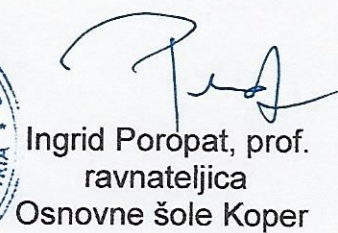 Ingrid Poropat, prof.
ravnateljica
Osnovne šole Koper